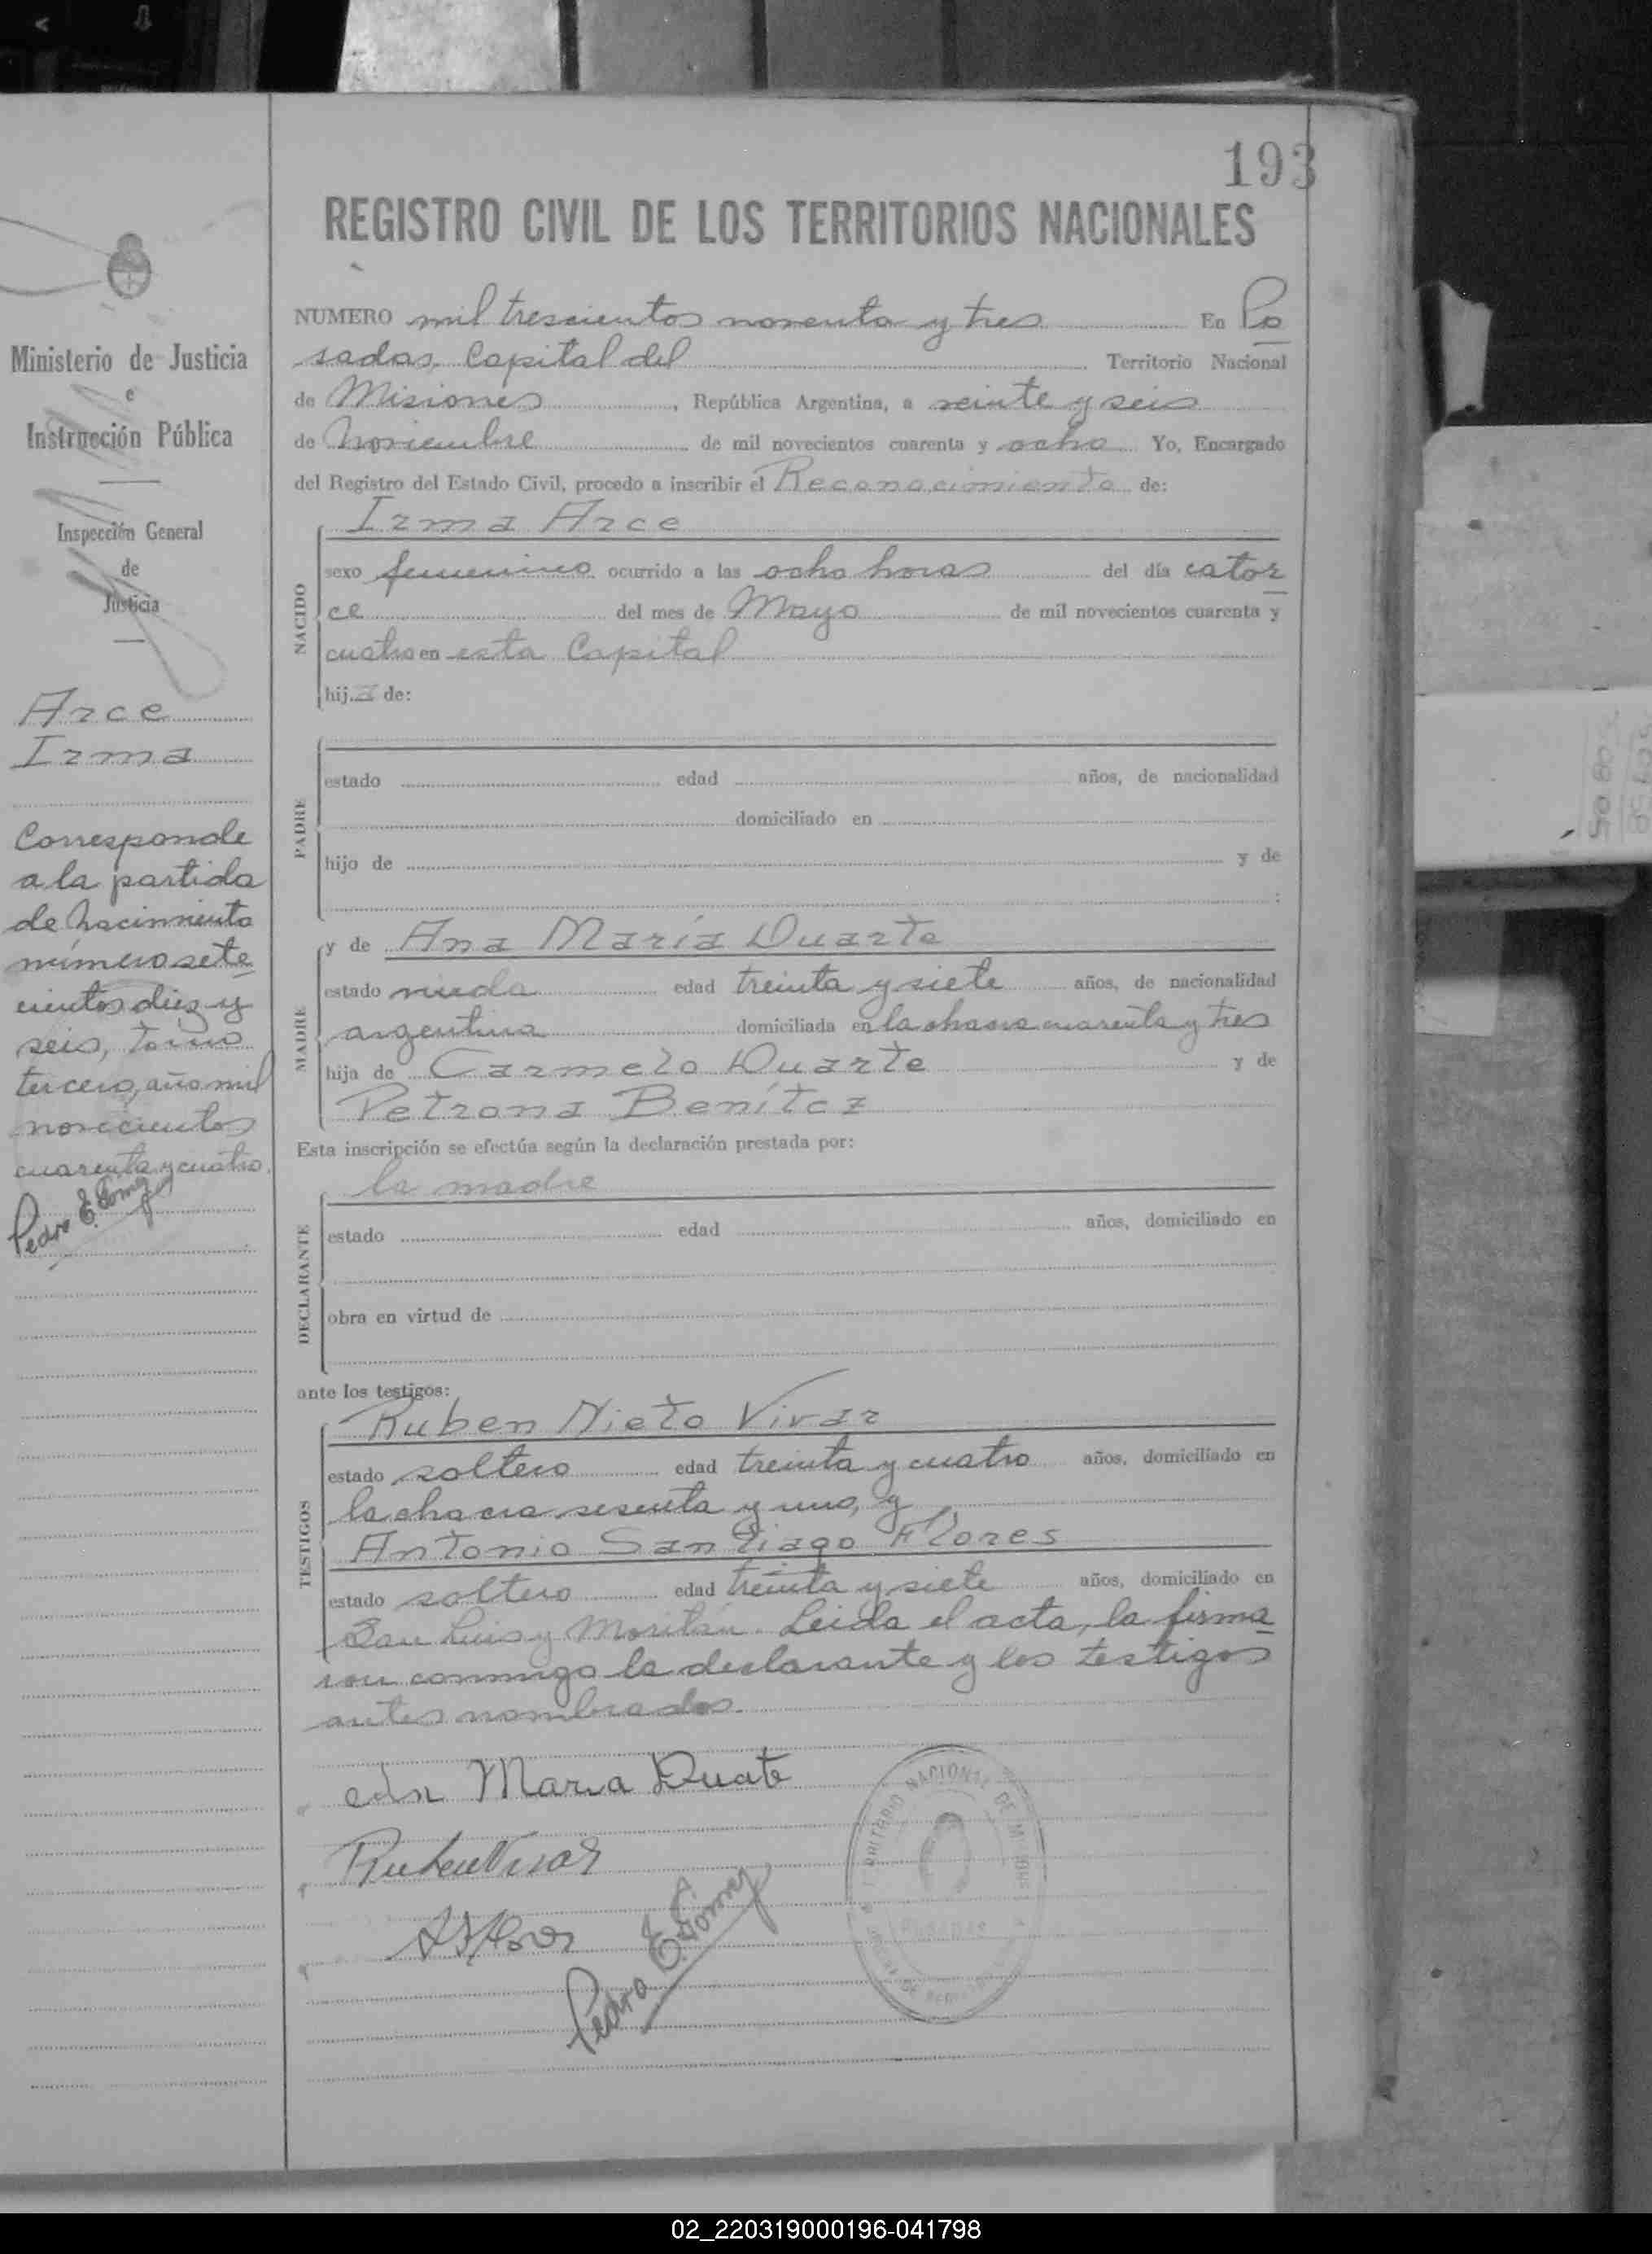 193
REGISTRO CIVIL DE LOS TERRITORIOS NACIONALES
Ministerio de Justicia
e
Instrucción Pública
Inspección General
de
Justicia
Arce
Irma
Corresponde
a la partida
de nacimiento
número sete
cientos diez y
seis, tomo
tercero, año mil
novecientos
cuarenta y cuatro.
Pedro E. Gomez
NUMERO mil trescientos noventa y tres En Po
sadas, Capital del Territorio Nacional
de Misiones, República Argentina, a veinte y seis
de Noviembre de mil novecientos cuarenta y ocho Yo, Encargado
del Registro del Estado Civil, procedo a inscribir el Reconocimiento de:
Irma Arce
NACIDO
sexo femenino ocurrido a las ocho horas del día cator
ce del mes de Mayo de mil novecientos cuarenta y
cuatro en esta Capital
hija de:
PADRE
estado edad años, de nacionalidad
domiciliado en
hijo de y de
:
MADRE
y de Ana María Duarte
estado viuda edad treinta y siete años, de nacionalidad
argentina domiciliada en la chacra cuarenta y tres
hija de Carmelo Duarte y de
Petrona Benítez
Esta inscripción se efectúa según la declaración prestada por:
la madre
DECLARANTE
estado edad años, domiciliado en
obra en virtud de
ante los testigos:
Ruben Nieto Vivar
TESTIGOS
estado soltero edad treinta y cuatro años, domiciliado en
la chacra sesenta y uno, y
Antonio Santiago Flores
estado soltero edad treinta y siete años, domiciliado en
San Luis y Moritán. Leida el acta, la firma
ron conmigo la declarante y los testigos
antes nombrados.
Maria Duate
Ruben Vivar
Pedro E. Gomez
TERRITORIO NACIONAL DE MISIONES
POSADAS
02_220319000196-041798